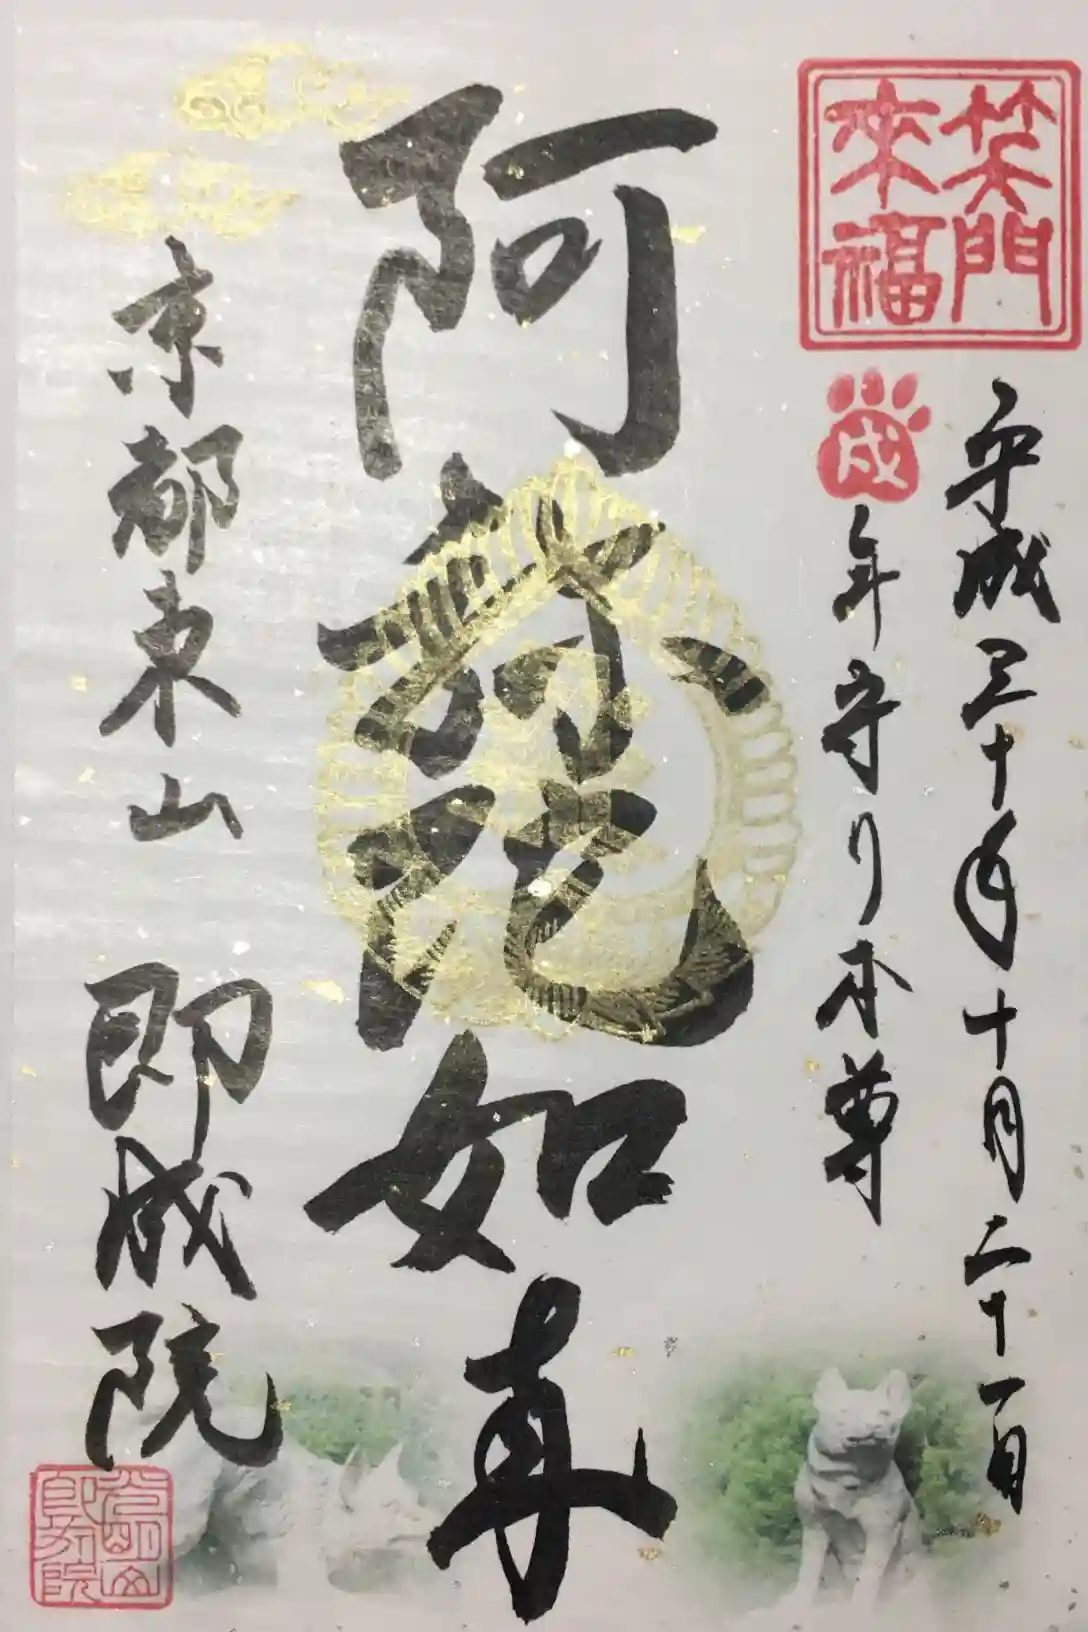 笑門
来福
平成三十年十月二十一日
戌年守り本尊
阿弥陀如来
京都東山 即成院
光明山
即成院